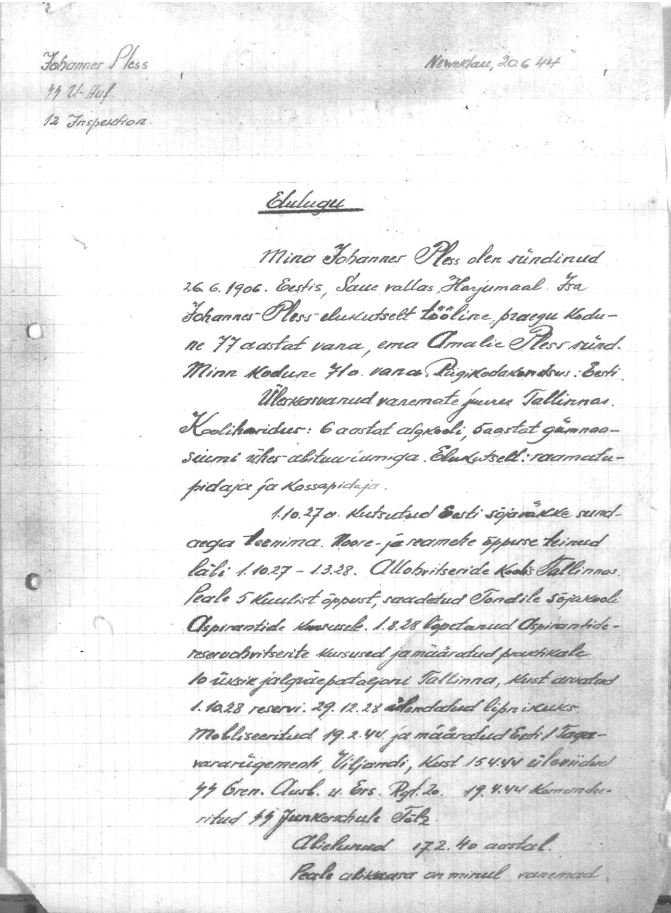 Johannes Pless
Neweklau, 20.6.44
SS U-Huf
12 Inspektion.
Elulugu
Mina Johannes Pless olen sündinud
26.6.1906. Eestis, Saue vallas, Harjumaal. Isa
Johannes Pless elukutselt tööline, praegu kodu-
ne 77 aastat vana, ema Amalie Pless sünd.
Minn kodune 71a. vana. Riigikodakondsus: Eesti.
Üleskasvanud vanemate juures Tallinnas.
Kooliharidus: 6 aastat algkooli, 5 aastat gümnaa-
siumi ühes abituuriumiga. Elukutselt: raamatu-
pidaja ja kassapidaja.
1.10.27a. kutsutud Eesti sõjaväkke sund-
aega teenima. Noore- ja reamehe õppuse teinud
läbi 1.10.27 – 1.3.28. Allohvitseride Koolis Tallinnas.
Peale 5 kuulist õppust, saadetud Tondile Sõjakooli
Aspirantide kursusele. 1.8.28 lõpetanud Aspirantide-
reservohvitserite kursused ja määratud praktikale
10 üksik jalgväepataljoni Tallinna, kust arvatud
1.10.28 reservi. 29.12.28 ülendatud lipnikuks.
Mobiliseeritud 19.2.44 ja määratud Eesti 1 Taga-
vararügementi, Viljandi, kust 15.4.44 üleviidud
SS Gren. Ausb. u. Ers. Rgt. 20. 19.4.44 komandee-
ritud SS Junkerschule Tölz.
Abielunud 17.2.40 aastal.
Peale abikaasa on minul vanemad.